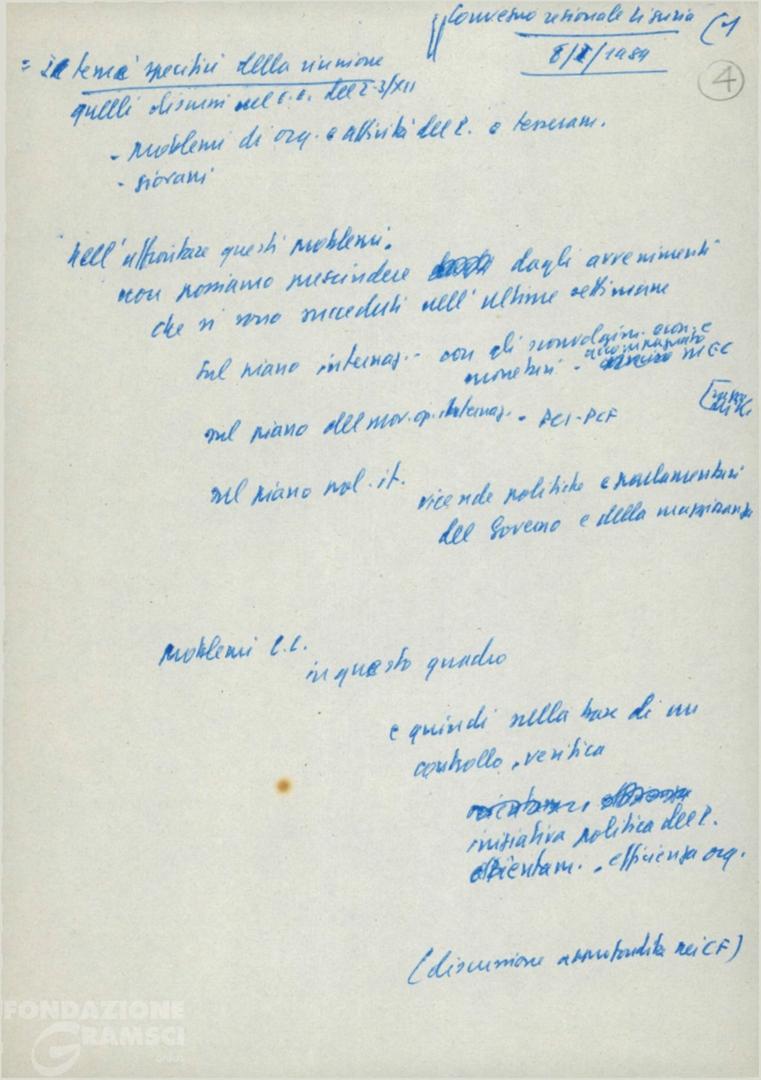 Convegno regionale Liguria (1
8/I/1989
4
= I temi specifici della riunione
quelli discussi nel C.C. del 2-3/XII
- problemi di org. e attività del P. e tesseram.
- giovani
Nell'affrontare questi problemi.
non possiamo prescindere dagli avvenimenti
che si sono succeduti nell'ultime settimane
sul piano internaz. - con gli sconvolgim. econ. e
monetari - accompagnato
sul piano del mov. op. internaz. - PCI-PCF
sul piano pol. it.
vicende politiche e parlamentari
del Governo e della maggioranza
problemi C.C.
in questo quadro
e quindi sulla base di un
controllo, verifica
iniziativa politica del P.
orientam., efficienza org.
(discussione approfondita nei CF)
FONDAZIONE
GRAMSCI
onlus